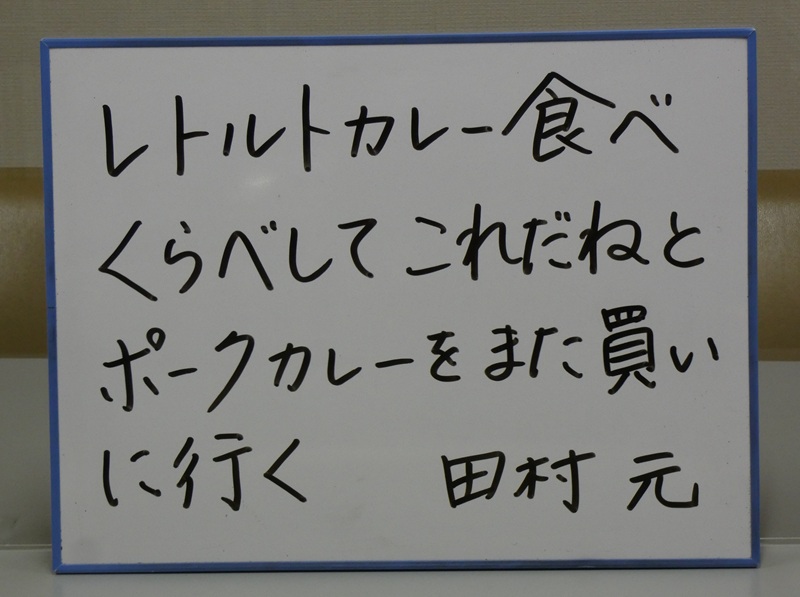 レトルトカレー食べ
くらべしてこれだねと
ポークカレーをまた買い
に行く　　田村 元